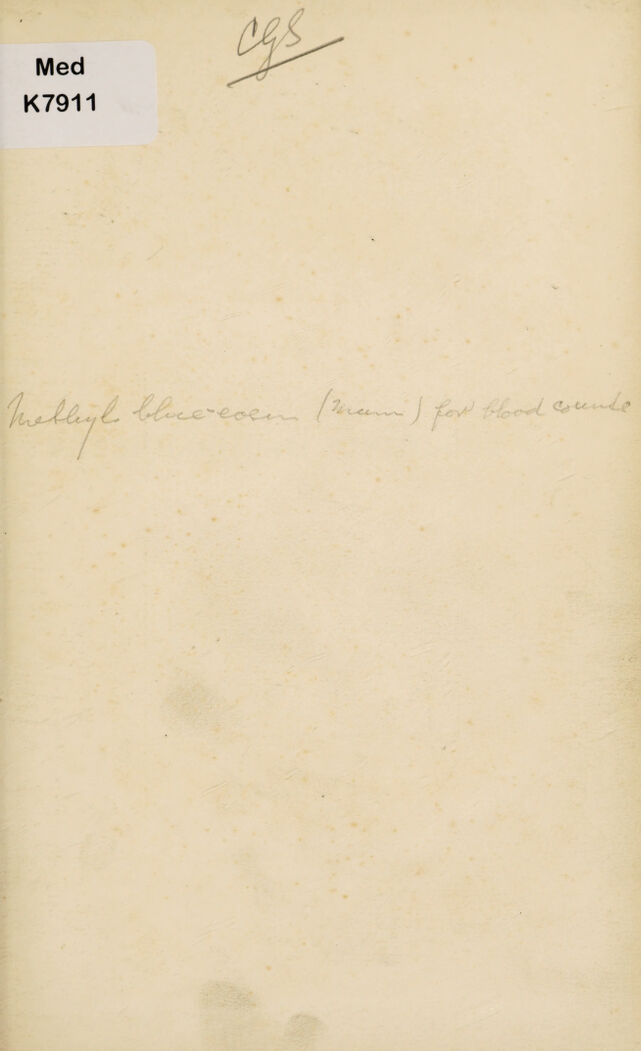 CGS
Med
K7911
Methyl blue-eosin (Mann) for blood counts